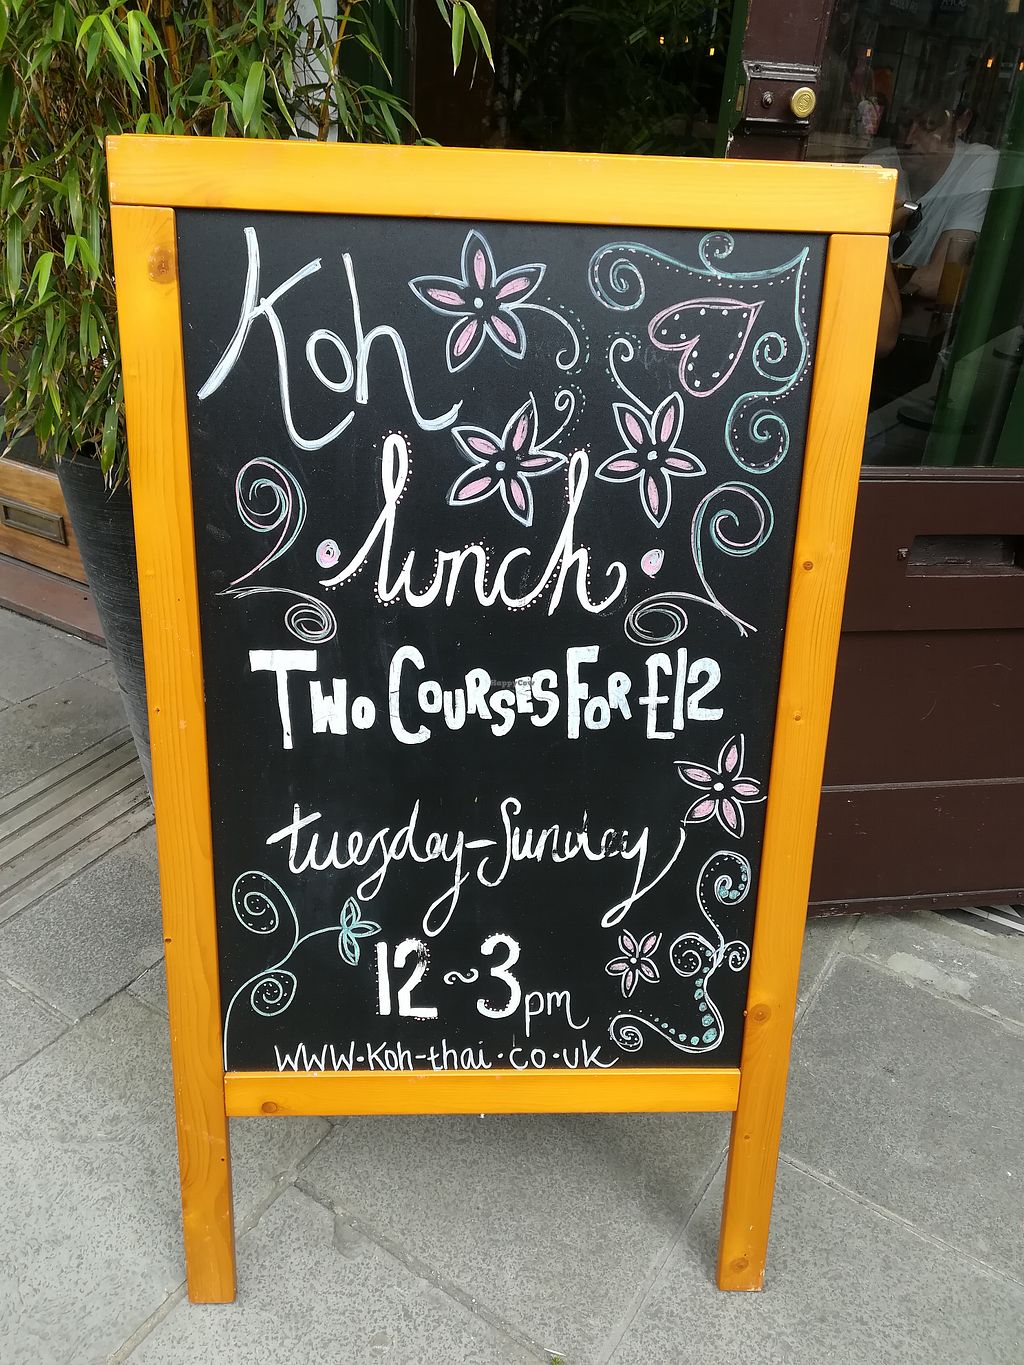 Koh
lunch
TWO COURSES FOR £12
HappyCow
tuesday-Sunday
12~3pm
www.Koh-thai.co.uk